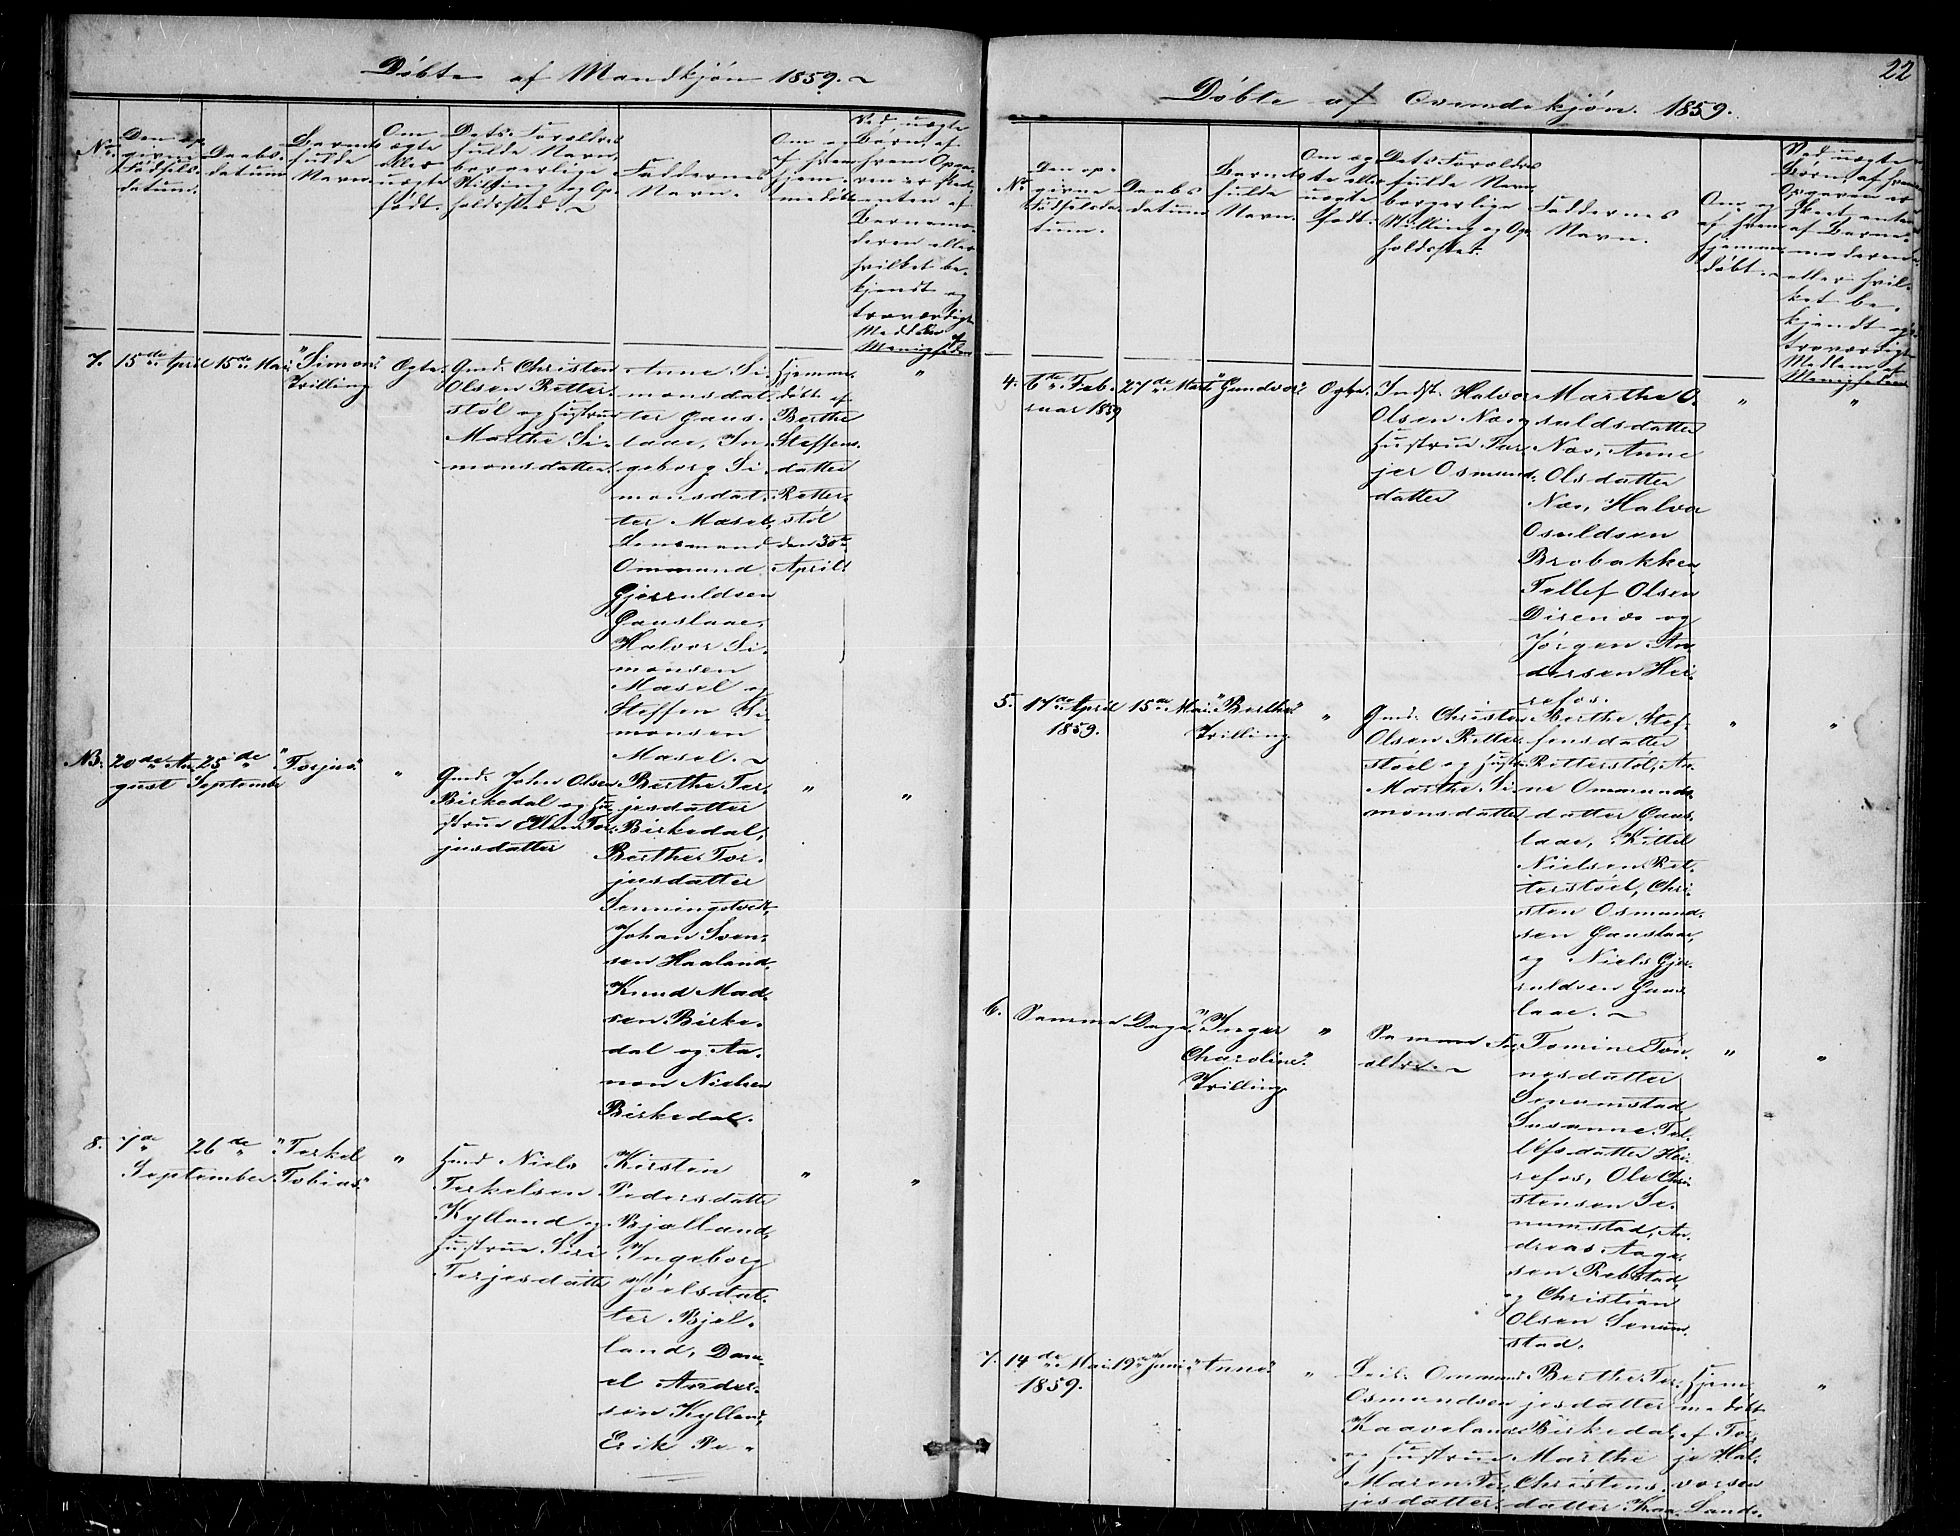 Döbte af Mandkjön 1859.
No.
Den op-
givne
Födsels-
datum.
Daabs-
datum
Barnets
fulde
Navn.
Om
ægte
eller
uægte
födt.
Dets Forældres
fulde Navn,
borgerlige
Stilling og Op-
holdssted.
Faddernes
Navn.
Om og
af hvem
hjem-
medöbt
Ved uægte
Börn, af
hvem Opga-
ven er skeet,
enten af
Barnemo-
deren eller
hvilket be-
kjendt og
troværdigt
Medlem af
Menigheden
7. 15de April 15de Mai "Simon"
Trilling
Ægte.
Gmd. Christen
Olsen Retter-
stöl og Hustrue
Marthe Si-
monsdatter.
Anne Si-
monsdat-
ter Gaus-
laae, In-
geborg Si-
monsdat-
ter Mæsel,
Lensmand
Ommund
Gjeruldsen
Gauslaae,
Halvor Si-
monsen
Mæsel og
Steffen Si-
monsen
Mæsel.
Hjemme-
döbt af
Berthe
Steffens-
datter
Retter-
stöl
den 30te
April.
"
N3. 20de Au-
gust
25de
September
"Torjus"
"
Gmd. John Olsen
Birkedal og Hu-
strue Ellen Tor-
jusdatter
Berthe Ter-
jesdatter
Birkedal,
Berthe Tor-
jusdatter
Senningstvedt,
Johan Sven-
sen Haaland,
Knud Mad-
sen Birke-
dal og Aa-
non Nielsen
Birkedal.
"
"
8. 7de
September
26de
"Terkel
Tobias"
"
Huusmd Niels
Terkelsen
Kylland og
Hustrue Siri
Terjesdatter
Kirsten
Pedersdatter
Bjælland,
Ingeborg
Joelsdat-
ter Bjel-
land, Dani-
el Ander-
sen Kylland,
Erik Pe-
"
"
22
Döbte af Qvindekjön. 1859.
No.
Den op-
givne
Födselsda-
tum.
Daabs
datum
Barnets
fulde
Navn.
Om æg-
te eller
uægte
födt.
Dets Forældres
fulde Navn
borgerlige
Stilling og Op-
holdssted.
Faddernes
Navn.
Om og
af hvem
hjemme-
döbt.
Ved uægte
Börn, af hvem
Opgaven er
skeet, enten
af Barne-
moderen
eller hvil-
ket be-
kjendt og
troværdigt
Medlem af
Menigheden
4. 6te Feb-
ruar 1859
27de Marts "Gundvor"
Ægte.
Indst. Halvor
Olsen Næs og
Hustrue Tar-
jer Osmund-
datter
Marthe O-
suldsdatter
Næs, Anne
Olsdatter
Næs, Halvor
Osuldsen
Brobakken,
Tellef Olsen
Direnæs og
Jörgen An-
dersen Hei-
refos.
"
"
5. 17de April
1859.
15de Mai "Berthe"
Trilling
"
Gmd. Christen
Olsen Retter-
stöel og Hustr.
Marthe Si-
monsdatter
Berthe Stef-
fensdatter
Retterstöl, An-
ne Ommunds-
datter Gaus-
laae, Kittel
Nielsen Ret-
terstöel, Chri-
sten Osmund-
sen Gauslaae,
og Niels Gjer-
ruldsen Gaus-
laae.
"
"
6. Samme Dage. "Inger
Charoline"
Trilling
"
Samme For-
ældre.
Tomine Tön-
nesdatter
Senumstad,
Susanne Tel-
lefsdatter Hei-
refos, Ole Chri-
stensen Se-
numstad, An-
dreas Aage-
sen Rebstad,
og Christian
Olsen Senum-
stad.
"
"
7. 14de Mai
1859.
19de Juni "Anne"
"
Leil. Ommund
Osmundsen
Kaaveland
og Hustrue
Maren Ter-
jesdatter.
Berthe Ter-
jesdatter
Birkedal,
Marthe
Christens-
datter Kaa-
Hjem-
me döbt
af Ter-
je Hal-
vorsen
Sand-
"